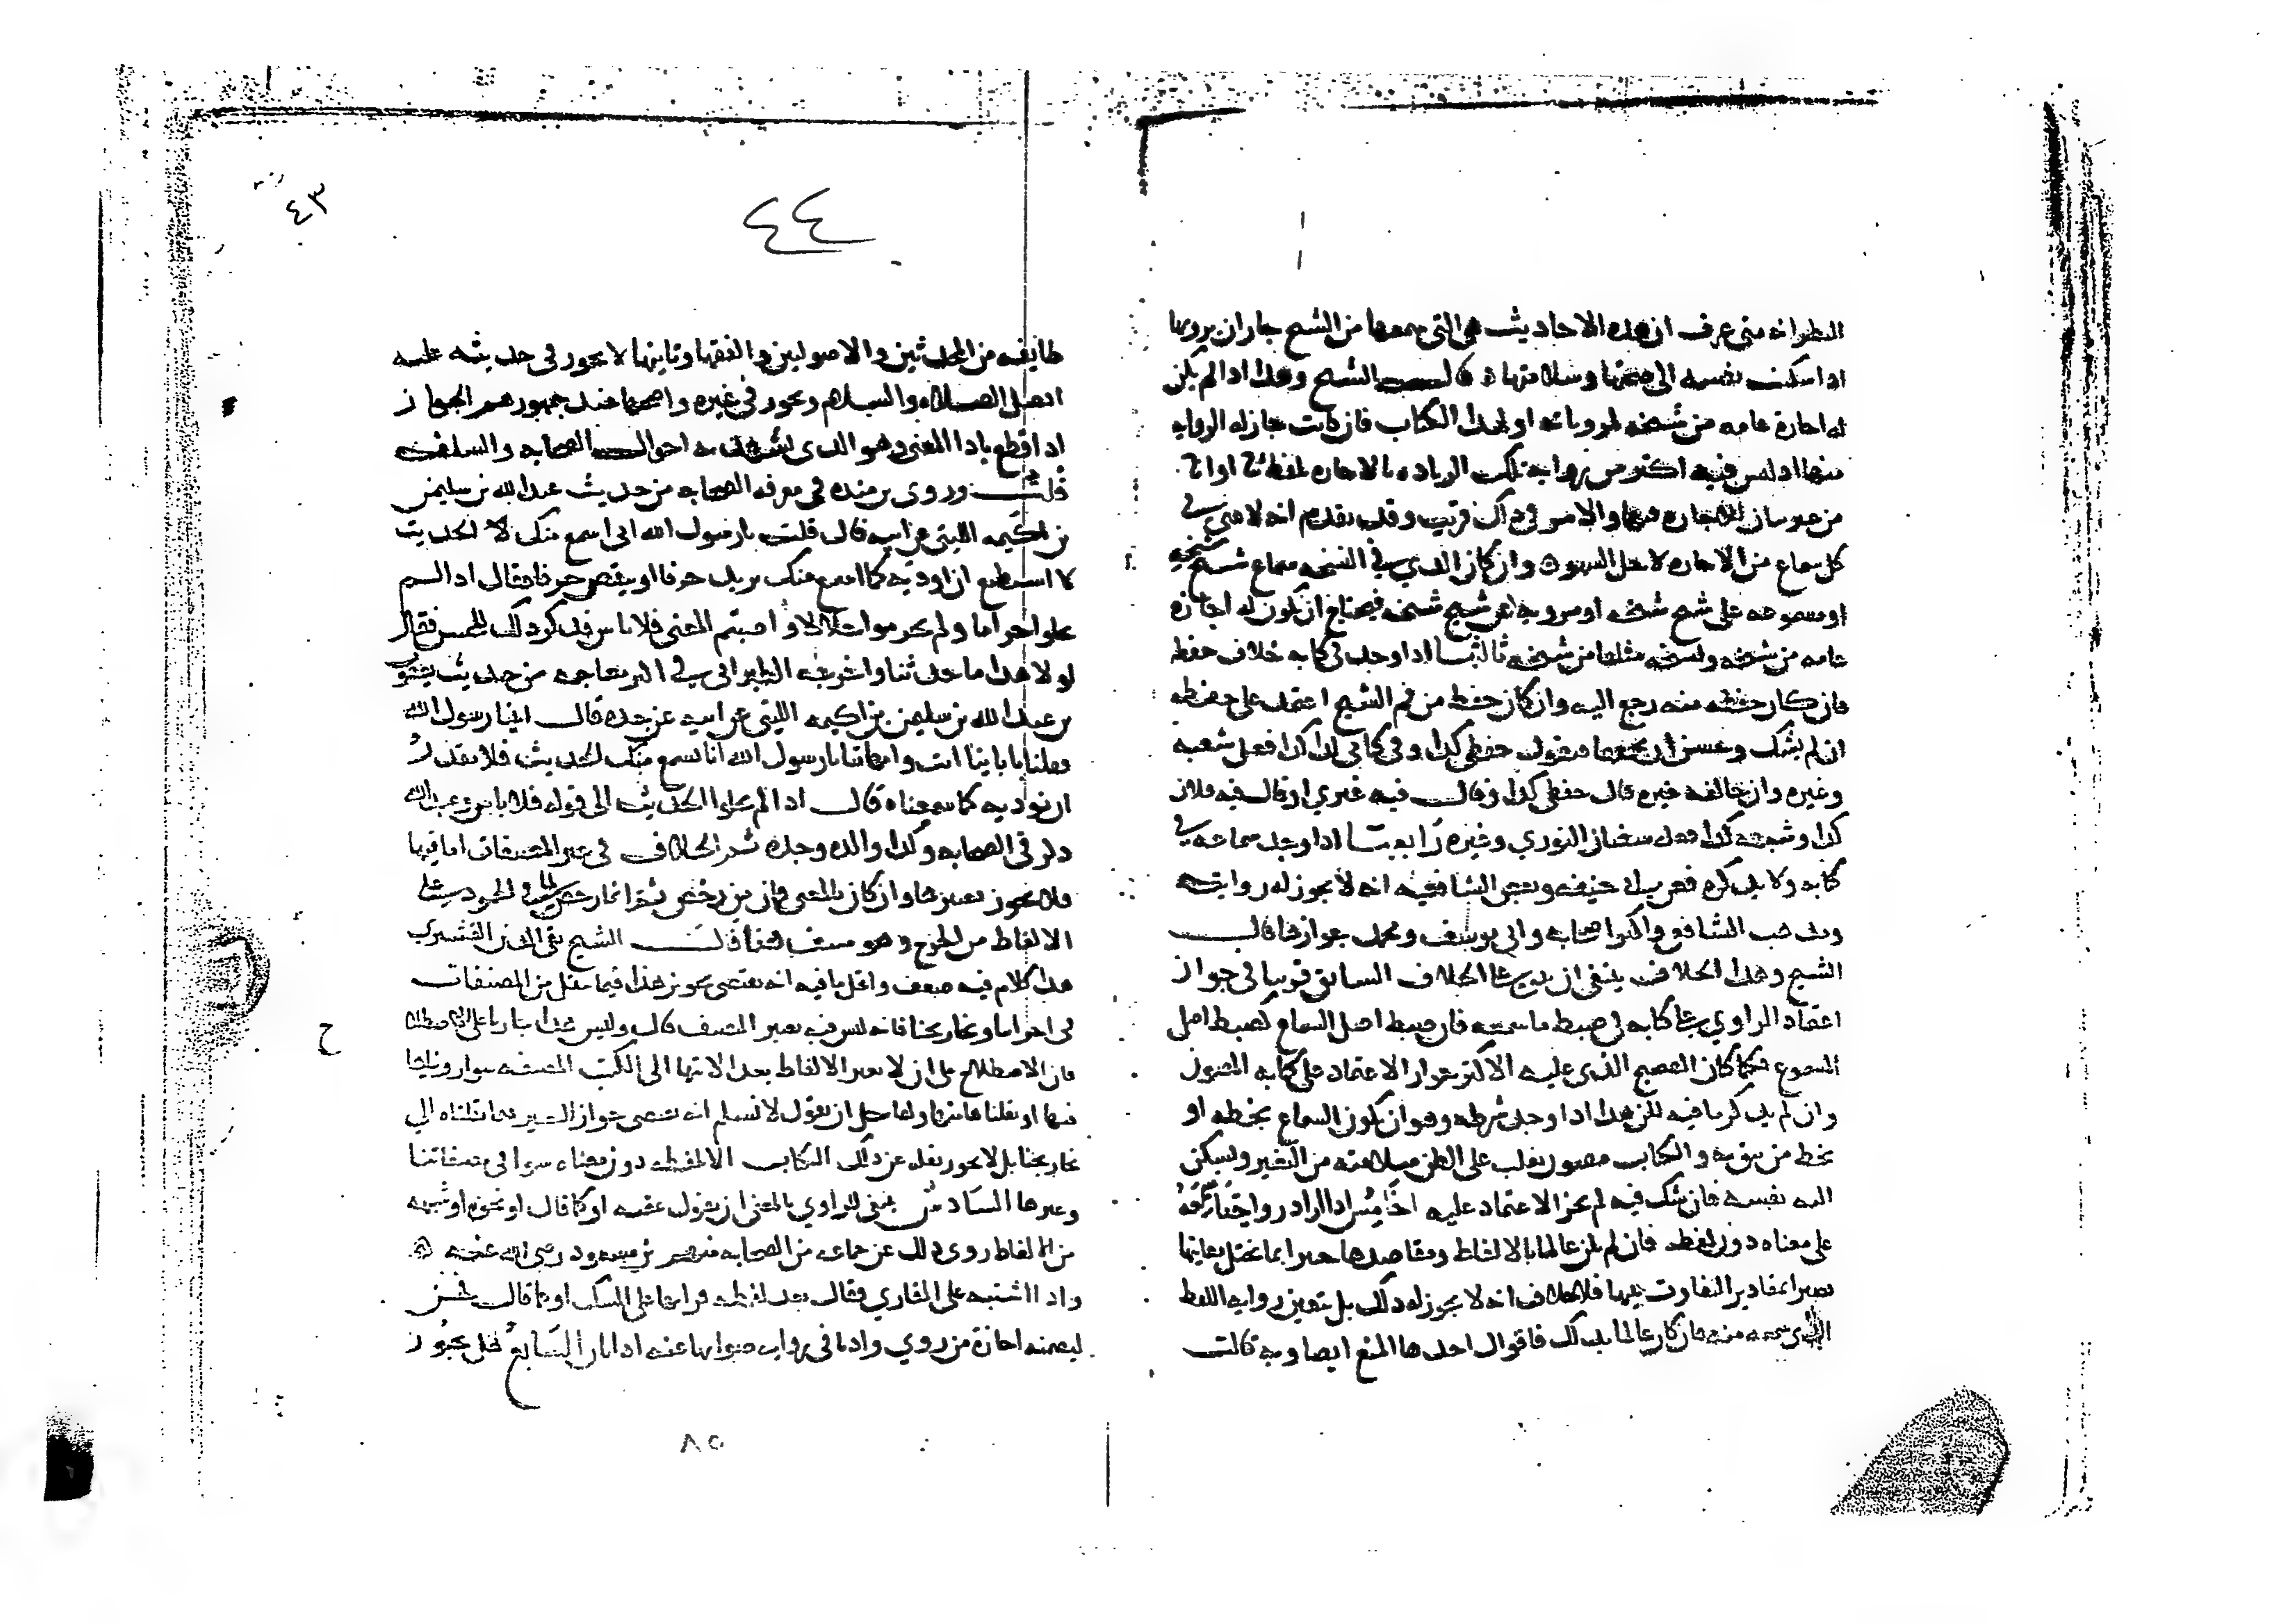 النظر انه متى عرف ان هذه الاحاديث هي التي سمعها من الشيخ جاز ان يرويها
اذا سكنت نفسه الى صحتها وسلامتها قال الشيخ وهذا اذا لم يكن
له اجازة عامه من شيخه لمروياته او لهذا الكتاب فان كانت جاز له الروايه
منها اذ ليس فيه اكثر من روايه تلك الزياده بالاجازه بلفظ انا او ثنا
من غير بيان الاجازه فيها والامر في ذلك قريب وقد تقدم انه لا غنى في
كل سماع عن الاجازه لاجل السهو وان كان الذي في النسخه سماع شيخ شيخه
او مسموعه على شيخ شيخه او مرويه عن شيخ شيخه فيحتاج ان يكون له اجازة
عامه من شيخه ولشيخه مثلها من شيخه ثالثها اذا وجد في كتابه خلاف حفظه
فان كان حفظه منه رجع اليه وان كان حفظه من فم الشيخ اعتمد على حفظه
ان لم يشك وحسن ان يجمعها فيقول حفظي كذا وفي كتابي كذا كذا فعل شعبه
وغيره وان خالفه غيره قال حفظي كذا وقال فيه غيري او قال فيه فلان
كذا وشبهه كذا فعله سفيان الثوري وغيره رابعها اذا وجد سماعه في
كتابه ولا يذكره فعن ابي حنيفه وبعض الشافعيه انه لا يجوز له روايته
ومذهب الشافعي واكثر اصحابه وابي يوسف ومحمد جوازها قال
الشيخ وهذا الخلاف ينبغي ان يبنى على الخلاف السابق قريبا في جواز
اعتماد الراوي على كتابه في ضبط ما سمعه فان ضبط اصل السماع كضبط اصل
المسموع فكما كان الصحيح الذي عليه الاكثر جواز الاعتماد على كتابه المصون
وان لم يذكر ما فيه لكن هذا اذا وجد شرطه وهو ان يكون السماع بخطه او
بخط من يثق به والكتاب مصون يغلب على الظن سلامته من التغير وتسكن
اليه نفسه فان شك فيه لم يجز الاعتماد عليه خامسها اذا اراد روايه ما سمعه
على معناه دون لفظه فان لم يكن عالما بالالفاظ ومقاصدها خبيرا بما يحيل معانيها
بصيرا بمقادير التفاوت بينها فلا خلاف انه لا يجوز له ذلك بل يتعين روايه اللفظ
الذي سمعه منه فان كان عالما بذلك فاقوال احدها المنع ايضا وبه قالت
٤٣
٤٤
طايفه من المحدثين والاصوليين والفقها وثانيها لا يجوز في حديثه عليه
افضل الصلاه والسلام ويجوز في غيره واصحها عند جمهورهم الجواز
اذا قطع باداء المعنى وهو الذي يشهد به احوال الصحابه والسلف
قلت وروى بن منده في معرفه الصحابه من حديث عبد الله بن سليمن
بن اكيمه الليثي عن ابيه قال قلت يارسول الله اني اسمع منك الحديث
لا استطيع ان اوديه كما اسمع منك يزيد حرفا او ينقص حرفا فقال اذا لم
تحلوا حراما ولم تحرموا حلالا واصبتم المعنى فلا باس فذكر ذلك للحسن فقال
لولا هذا ما حدثنا واخرجه الطبراني في اكبر معاجمه من حديث يعقوب
بن عبد الله بن سليمن بن اكيمه الليثي عن ابيه عن جده قال اتينا رسول الله
فقلنا بابائنا انت وامهاتنا يارسول الله انا نسمع منك الحديث فلا نقدر
ان نوديه كما سمعناه قال اذا لم تحلوا الحديث الى قوله فلا باس وعبد الله
ذكر في الصحابه وكذا والده وجده ثم الخلاف في غير المصنفات اما فيها
فلا يجوز تغييرها وان كان بالمعنى فان من رخص ثم انما رخص لما في الجمود على
الالفاظ من الحرج وهو منتف هنا قالت الشيخ تقي الدين القشيري
هذا كلام فيه ضعف واقل ما فيه انه يقتضي تجويز هذا فيما ينقل من المصنفات
في اجزائنا وتخاريجنا فانه ليس فيه تغيير المصنف قال وليس هذا جاريا على الاصطلاح
فان الاصطلاح على ان لا تغير الالفاظ بعد الانتها الى الكتب المصنفه سوا رويناها
فيها او نقلناها منها ولقائل ان يقول لا نسلم انه يقتضي جواز التغيير فيما نقلناه الى
تخاريجنا بل لا يجوز نقله عن ذلك الكتاب الا بلفظه دون معناه سوا في مصنفاتنا
وغيرها السادس ينبغي للراوي بالمعنى ان يقول عقبه او كما قال او نحوه او شبهه
من الالفاظ روي ذلك عن جماعه من الصحابه منهم بن مسعود رضي الله عنه
واذا اشتبه على القاري فقال بعد لفظه قراها على الشك او كما قال فحسن
ليضمنه اجازة من روي واذنا في روايه صوابها عنه اذا بان السابع هل يجوز
ح
٨٥